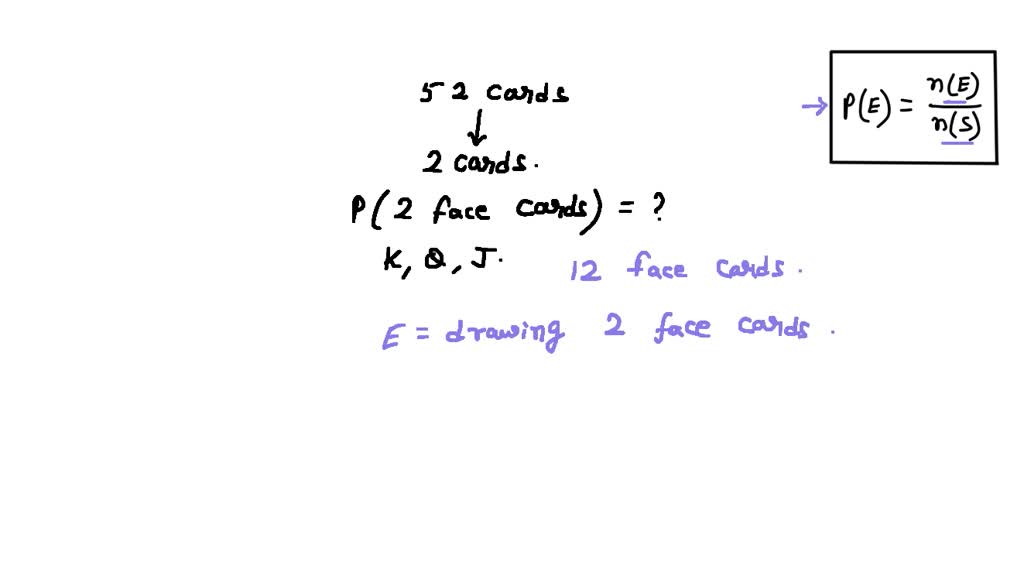 52 cards
↓
2 cards.
P(2 face cards) = ?
K, Q, J.
12 face cards.
E = drawing 2 face cards.
→ P(E) = n(E)/n(S)